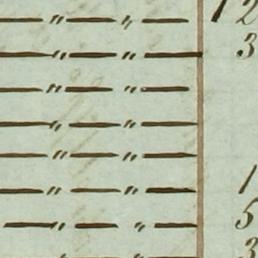 — " — " — 12
— " — " — 3
— " — " —
— " — " —
— " — " —
— " — " — 1
— " — " — 5
3